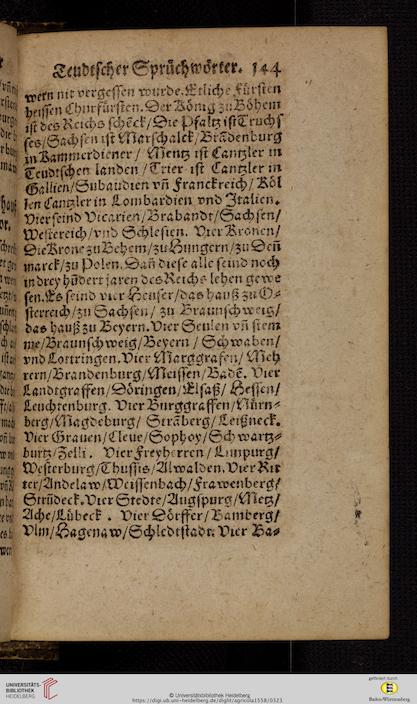 Teudtscher Sprüchwörter. 144
wern nit vergessen wurde. Etliche Fürsten
heissen Churfürsten. Der König zu Böhem
ist des Reichs schēck/Die Pfaltz ist Truchs
ses/Sachsen ist Marschalck/Brādenburg
in Kammerdiener/ Mentz ist Cantzler in
Teudtschen landen/Trier ist Cantzler in
Gallien/Subaudien vñ Franckreich/Köl
len Cantzler in Lombardien vnd Italien.
Vier seind Vicarien/Brabandt/Sachsen/
Westereich/vnd Schlesien. Vier Kronen/
Die Krone zu Behem/zu Hungern/zu Deñ
marck/zu Polen. Dañ diese alle seind noch
in drey hūdert jaren des Reichs lehen gewe
sen. Es seind vier Heuser/das hauß zu O-
sterreich/zu Sachsen/ zu Braunschweig/
das hauß zu Beyern. Vier Seulen vñ stem
me/Braunschweig/Beyern/Schwaben/
vnd Lottringen. Vier Marggrafen/Meh
rern/Brandenburg/Meissen/Badē. Vier
Landtgraffen/Döringen/Elsaß/Hessen/
Leuchtenburg. Vier Burggraffen/Nürn-
berg/Magdeburg/ Strāberg/Leißneck.
Vier Grauen/Cleue/Sophoy/Schwartz-
burtz/Zelli. Vier Freyherren/Limpurg/
Westerburg/Thussis/Alwalden. Vier Rit
ter/Andelaw/Weissenbach/Frawenberg/
Strūdeck. Vier Stedte/Augspurg/Metz/
Ache/Lübeck. Vier Dörffer/Bamberg/
Vlm/Hagenaw/Schledtstadt. Vier Ba-
UNIVERSITÄTS-
BIBLIOTHEK
HEIDELBERG
© Universitätsbibliothek Heidelberg
https://digi.ub.uni-heidelberg.de/diglit/agricola1558/0323
gefördert durch
Baden-Württemberg